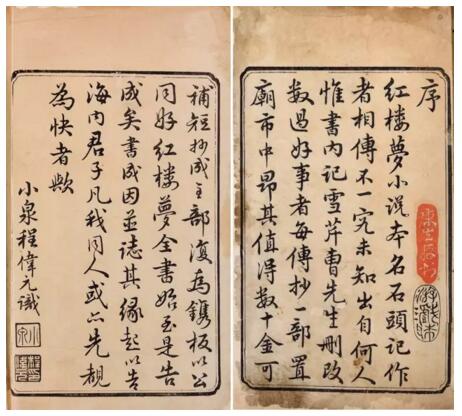 序
红楼夢小说本名石頭記作
者相傳不一究未知出自何人
惟書内记雪芹曹先生删改
数過好事者每傳抄一部置
廟市中昂其值得数十金可
補短抄成全部復為鐫板以公
同好红楼夢全書始至是告
成矣書成因並誌其缘起以告
海内君子凡我同人或亦先覩
為快者歟
小泉程偉元識